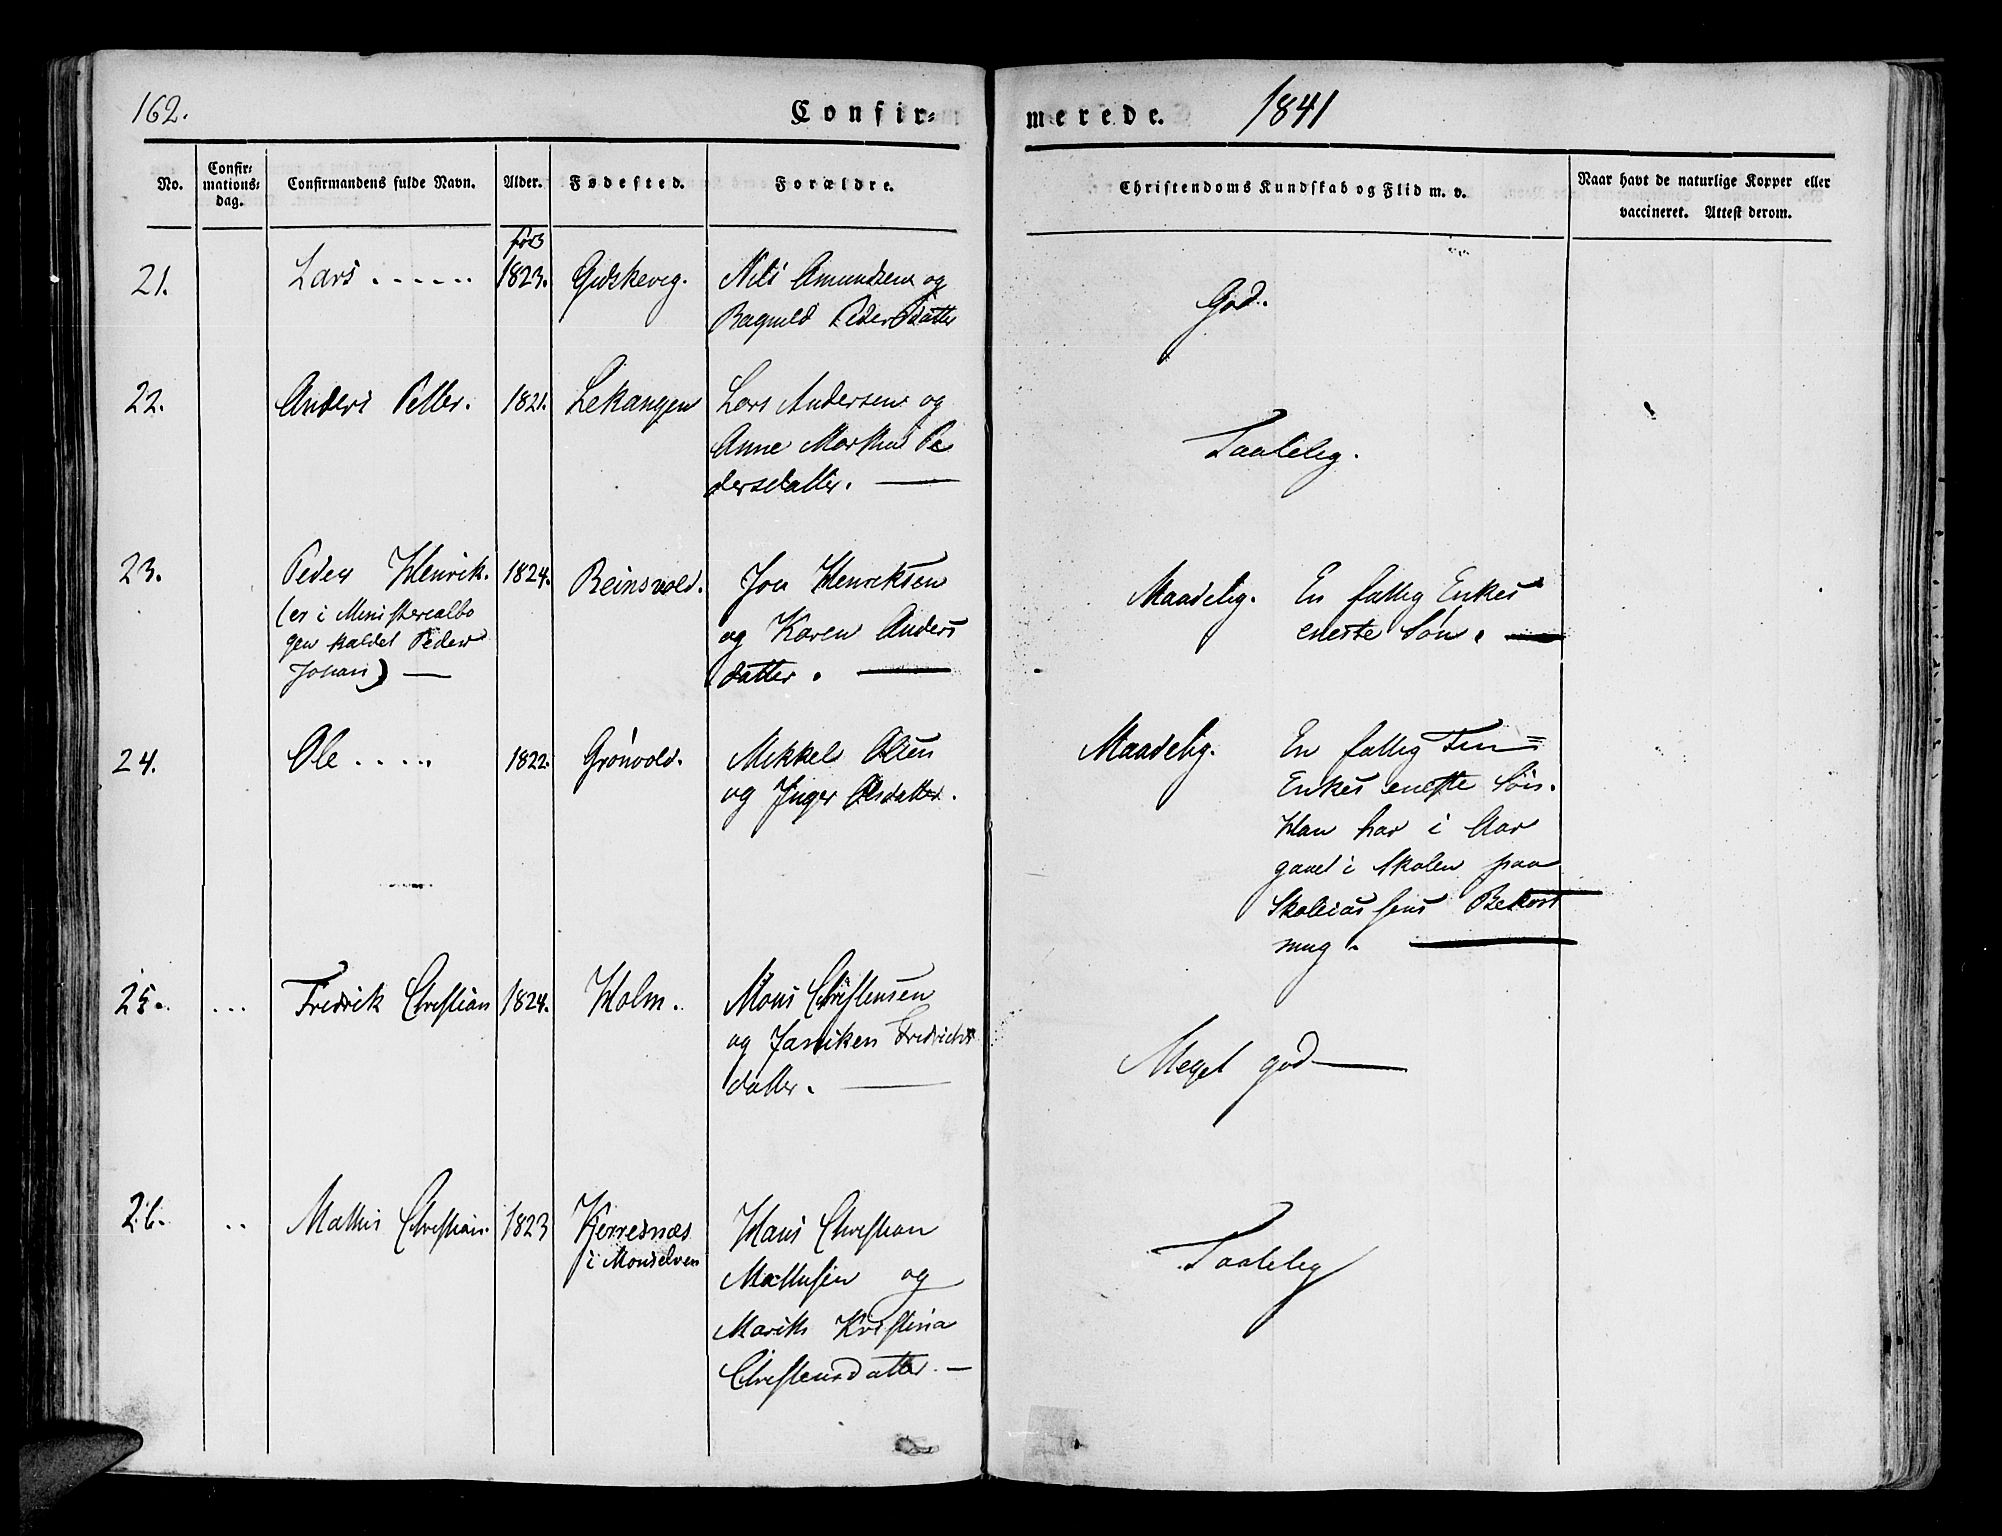 162.
Confir=
merede.
1841
No.
Confir=
mations=
dag.
Confirmandens fulde Navn.
Alder.
Fødested.
Forældre.
Christendoms Kundskab og Flid m. v.
Naar havt de naturlige Kopper eller
vaccineret. Attest derom.
født
21. Lars . . . . . . 1823. Gidskevig. Nils Amundsen og
Ragnild Pedersdatter
God.
22. Anders Petter. 1821. Lekangen Lars Andersen og
Anne Martha Pe
dersdatter. —
Taalelig.
23. Peder Henrik. 1824. Reinsvold. Jon Henriksen
(er i Ministerealbo
gen kaldet Peder
Johan) —
og Karen Anders
datter. —
Maadelig. En fattig Enkes
eneste Søn. —
24. Ole . . . . . 1822. Grønvold. Mikkel Olsen
og Inger Olsdatter.
Maadelig. En fattig Fin=
Enkes eneste Søn.
Han har i Aar
gaaet i Skolen paa
Skolecassens Bekost
ning. —
25. . . . Fredrik Christian 1824. Holm. Mons Christensen
og Janiken Fredrichs
datter. —
Meget god —
26. . . Mathis Christian. 1823 Kjerresnæs
i Monselven
Hans Christian
Mathisen og
Marith Kristina
Christensdatter. —
Taalelig